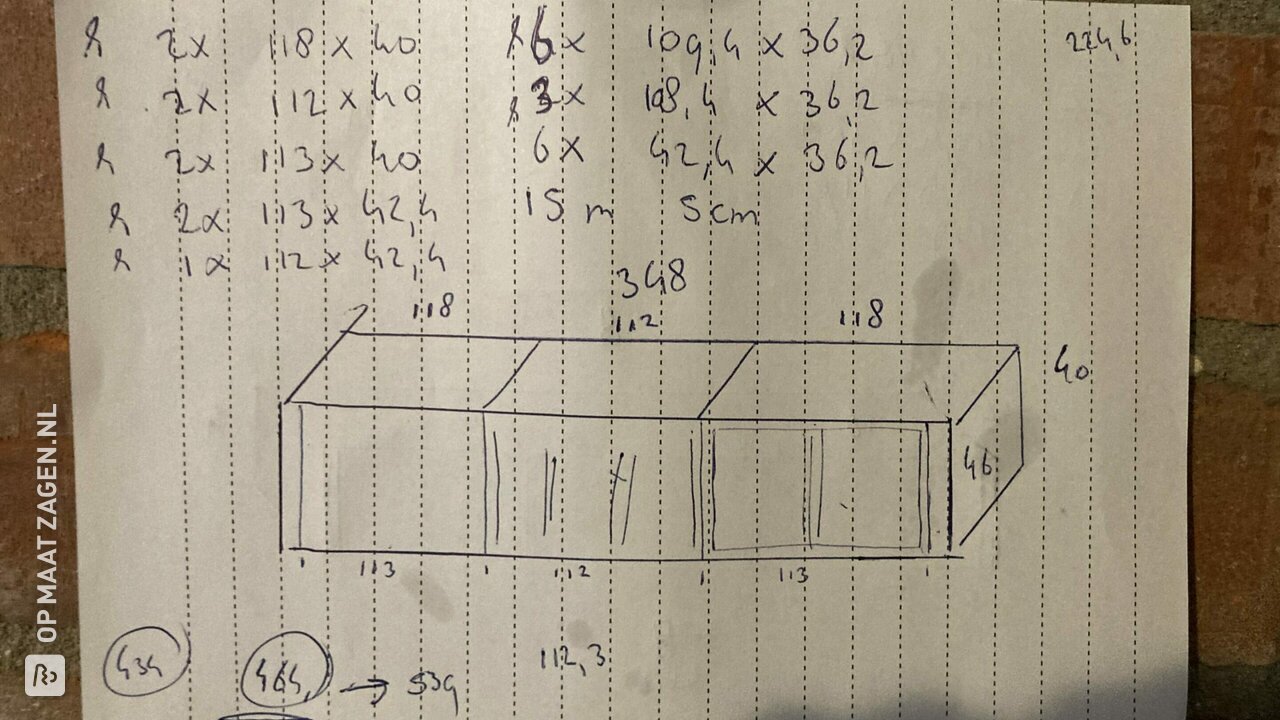 2x 118 x 40
2x 112 x 40
2x 113 x 40
2x 113 x 42,4
1x 112 x 42,4
6x 109,4 x 36,2
3x 108,4 x 36,2
6x 42,4 x 36,2
15 m 5cm
224,6
348
118 112 118
40
46
113 112 113
112,3
434 464, → 539
OP MAAT ZAGEN.NL